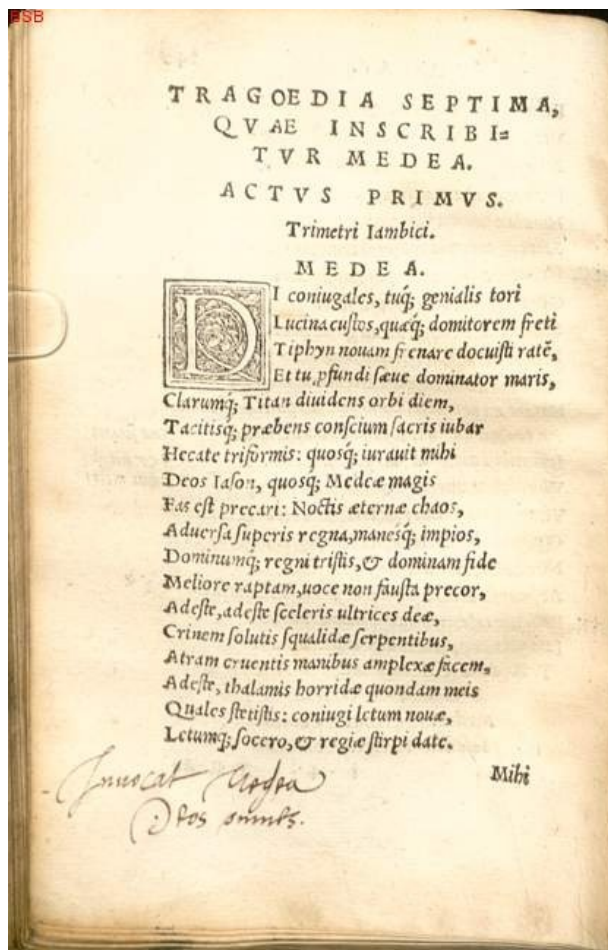 BSB
TRAGOEDIA SEPTIMA,
QVAE INSCRIBI=
TVR MEDEA.
ACTVS PRIMVS.
Trimetri Iambici.
MEDEA.
DI coniugales, tuq́; genialis tori
Lucina custos, quæq́; domitorem freti
Tiphyn nouam frenare docuisti ratẽ,
Et tu ꝓfundi sæue dominator maris,
Clarumq́; Titan diuidens orbi diem,
Tacitisq́; præbens conscium sacris iubar
Hecate triformis: quosq́; iurauit mihi
Deos Iason, quosq́; Medeæ magis
Fas est precari: Noctis æternæ chaos,
Aduersa superis regna, manesq́; impios,
Dominumq́; regni tristis, & dominam fide
Meliore raptam, uoce non fausta precor,
Adeste, adeste sceleris ultrices deæ,
Crinem solutis squalidæ serpentibus,
Atram cruentis manibus amplexæ facem,
Adeste, thalamis horridæ quondam meis
Quales stetistis: coniugi letum nouæ,
Letumq́; socero, & regiæ stirpi date.
Mihi
Inuocat Medea
Deos omnes.